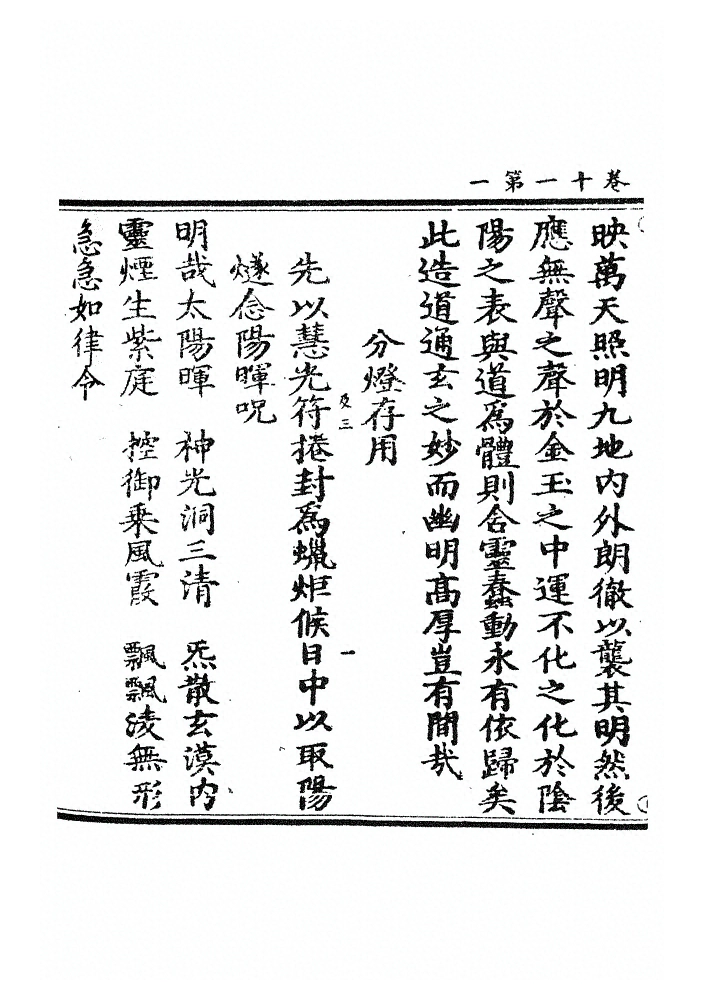 卷十一第一
映萬天照明九地內外朗徹以襲其明然後
應無聲之聲於金玉之中運不化之化於陰
陽之表與道為體則含靈蠢動永有依歸矣
此造道通玄之妙而幽明高厚豈有間哉
分燈存用
及三
先以慧光符捲封為蠟炬候日中以取陽
一
燧念陽暉呪
明哉太陽暉 神光洞三清 炁散玄漠內
靈煙生紫庭 控御乘風霞 飄飄淩無形
急急如律令